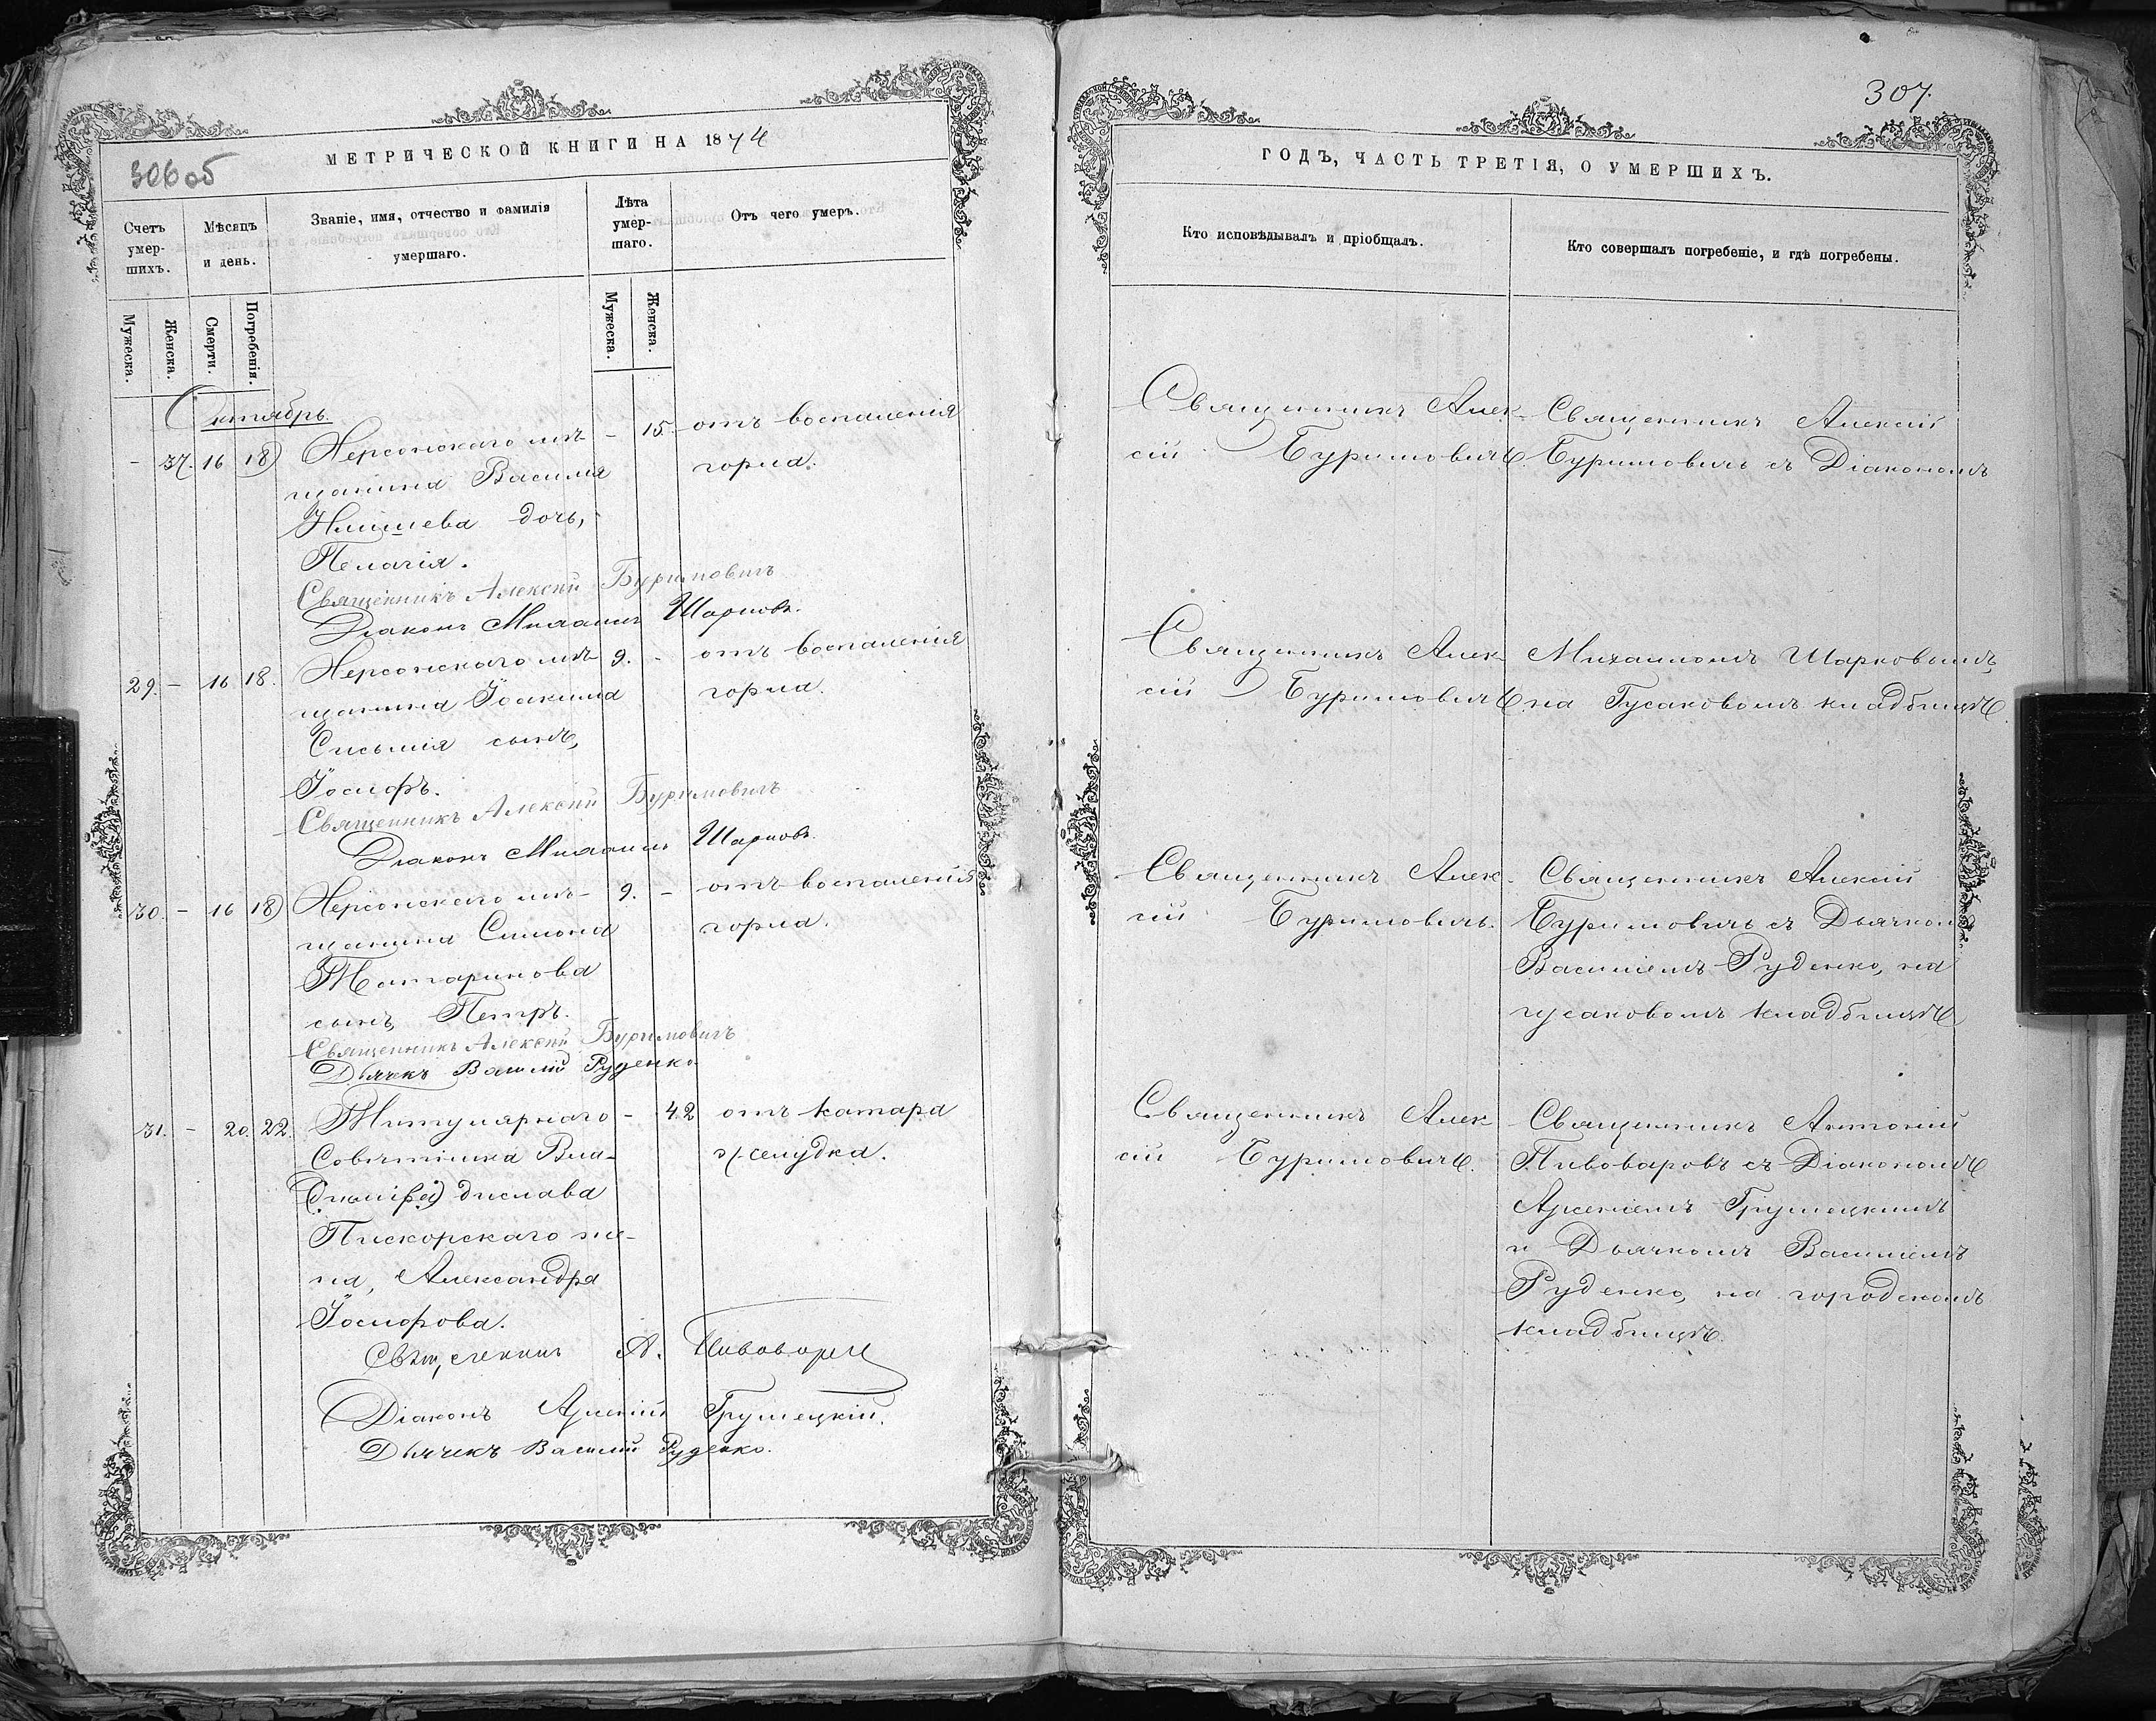 306 об
МЕТРИЧЕСКОЙ КНИГИ НА 1874
Счетъ умер-шихъ.
Мѣсяцъ и день.
Званіе, имя, отчество и фамилія умершаго.
Лѣта умер-шаго.
Отъ чего умеръ.
Мужеска.
Женска.
Смерти.
Погребенія.
Мужеска.
Женска.
Октябрь.
- 37. 16 18 Херсонскаго мѣ- - 15. отъ воспаленія
щанина Василія горла.
дочь,
Пелагія.
Священникъ Алексій Буримовичъ
Діаконъ Михаилъ Шарковъ.
29. - 16 18. Херсонскаго мѣ- 9. - отъ воспаленія
щанина Іоакима горла.
сынъ,
Іосифъ.
Священникъ Алексій Буримовичъ
Діаконъ Михаилъ Шарковъ.
30. - 16 18 Херсонскаго мѣ- 9. - отъ воспаленія
щанина Симона горла.
Татаринова
сынъ, Петръ.
Священникъ Алексій Буримовичъ
Дьячекъ Василій Руденко
31. - 20. 22. Титулярнаго - 42 отъ катара
Совѣтника Вла- желудка.
дислава
Пискорскаго же-
на, Александра
Іосифова.
Священникъ А. Пивоваровъ
Діаконъ Арсеній Грумецкій.
Дьячекъ Василій Руденко.
307.
ГОДЪ, ЧАСТЬ ТРЕТІЯ, О УМЕРШИХЪ.
Кто исповѣдывалъ и пріобщалъ.
Кто совершалъ погребеніе, и гдѣ погребены.
Священникъ Алек- Священникъ Алексій
сій Буримовичъ. Буримовичъ съ Діакономъ
Священникъ Алек- Михаиломъ Шарковымъ,
сій Буримовичъ. на Гусаковомъ кладбищѣ.
Священникъ Алек- Священникъ Алексій
сій Буримовичъ. Буримовичъ съ Дьячком
Василіемъ Руденко, на
гусаковомъ кладбищѣ
Священникъ Алек Священникъ Антоній
сій Буримовичъ. Пивоваровъ съ Діакономъ
Арсеніемъ Грумецкимъ
и Дьячкомъ Василіемъ
Руденко, на городскомъ
кладбищѣ.